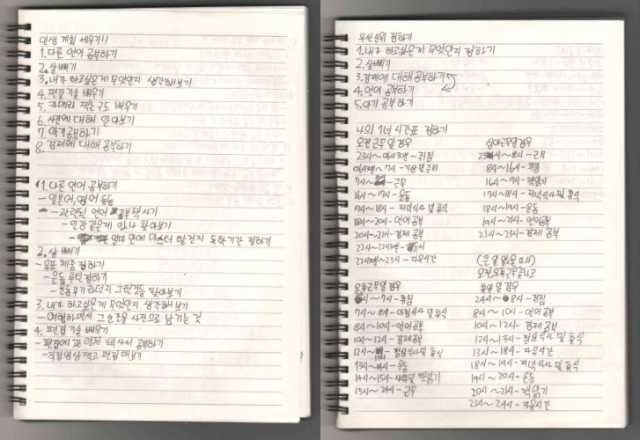 인생 계획 세우기!!
1. 다른 언어 공부하기
2. 살빼기
3. 내가 하고싶은게 무엇인지 생각해보기
4. 편집기술 배우기
5. 배우기
6. 사진에 대해 알아보기
7. 악기공부하기
8. 경제에 대해 공부하기
1. 다른 언어 공부하기
- 일본어, 영어 등등
- 관련된 언어 책사기
- 인강같은게 있나 찾아보기
- 얼마 안에 마스터 할건지 독학기간 정하기
2. 살 빼기
- 목표 체중 정하기
- 운동 루틴 정하기
- 운동기구라던지 그런것들 찾아보기
3. 내가 하고싶은게 무엇인지 생각해보기
- 여행하면서 그 순간을 사진으로 남기는 것
4. 편집기술 배우기
- 편집에 관련된 책사서 공부하기
- 직접영상 찍고 편집해보기
우선순위 정하기
1. 내가 하고싶은게 무엇인지 정하기
2. 살빼기
3. 경제에 대해 공부하기
4. 언어 공부하기
5. 악기 공부하기
시간표 정하기
오전근무일 경우
23시~ - 취침
7시~ - 근무
16시~17시 - 운동
17시~18시 - 저녁식사 및 휴식
18시~20시 - 언어공부
20시~22시 - 경제 공부
22시~22시반 - 독서
22시반~23시 - 자유시간
심야근무일 경우
~8시 - 근무
8시~16시 - 취침
16시~17시 - 책읽기
17시~18시 - 저녁식사 및 휴식
18시~19시 - 운동
19시~21시 - 언어공부
21시~23시 - 경제 공부
오후근무일 경우
~7시 - 취침
7시~8시 - 아침식사 및 휴식
8시~10시 - 언어공부
10시~12시 - 경제공부
12시~ - 점심식사 및 휴식
13시~14시 - 운동
14시~15시 - 샤워및 책읽기
15시~24시 - 근무
휴일일 경우
24시~8시 - 취침
8시~10시 - 언어공부
10시~12시 - 경제공부
12시~13시 - 점심식사 및 휴식
13시~18시 - 자유시간
18시~19시 - 저녁식사 및 휴식
19시~20시 - 운동
20시~21시 - 책읽기
21시~24시 - 자유시간